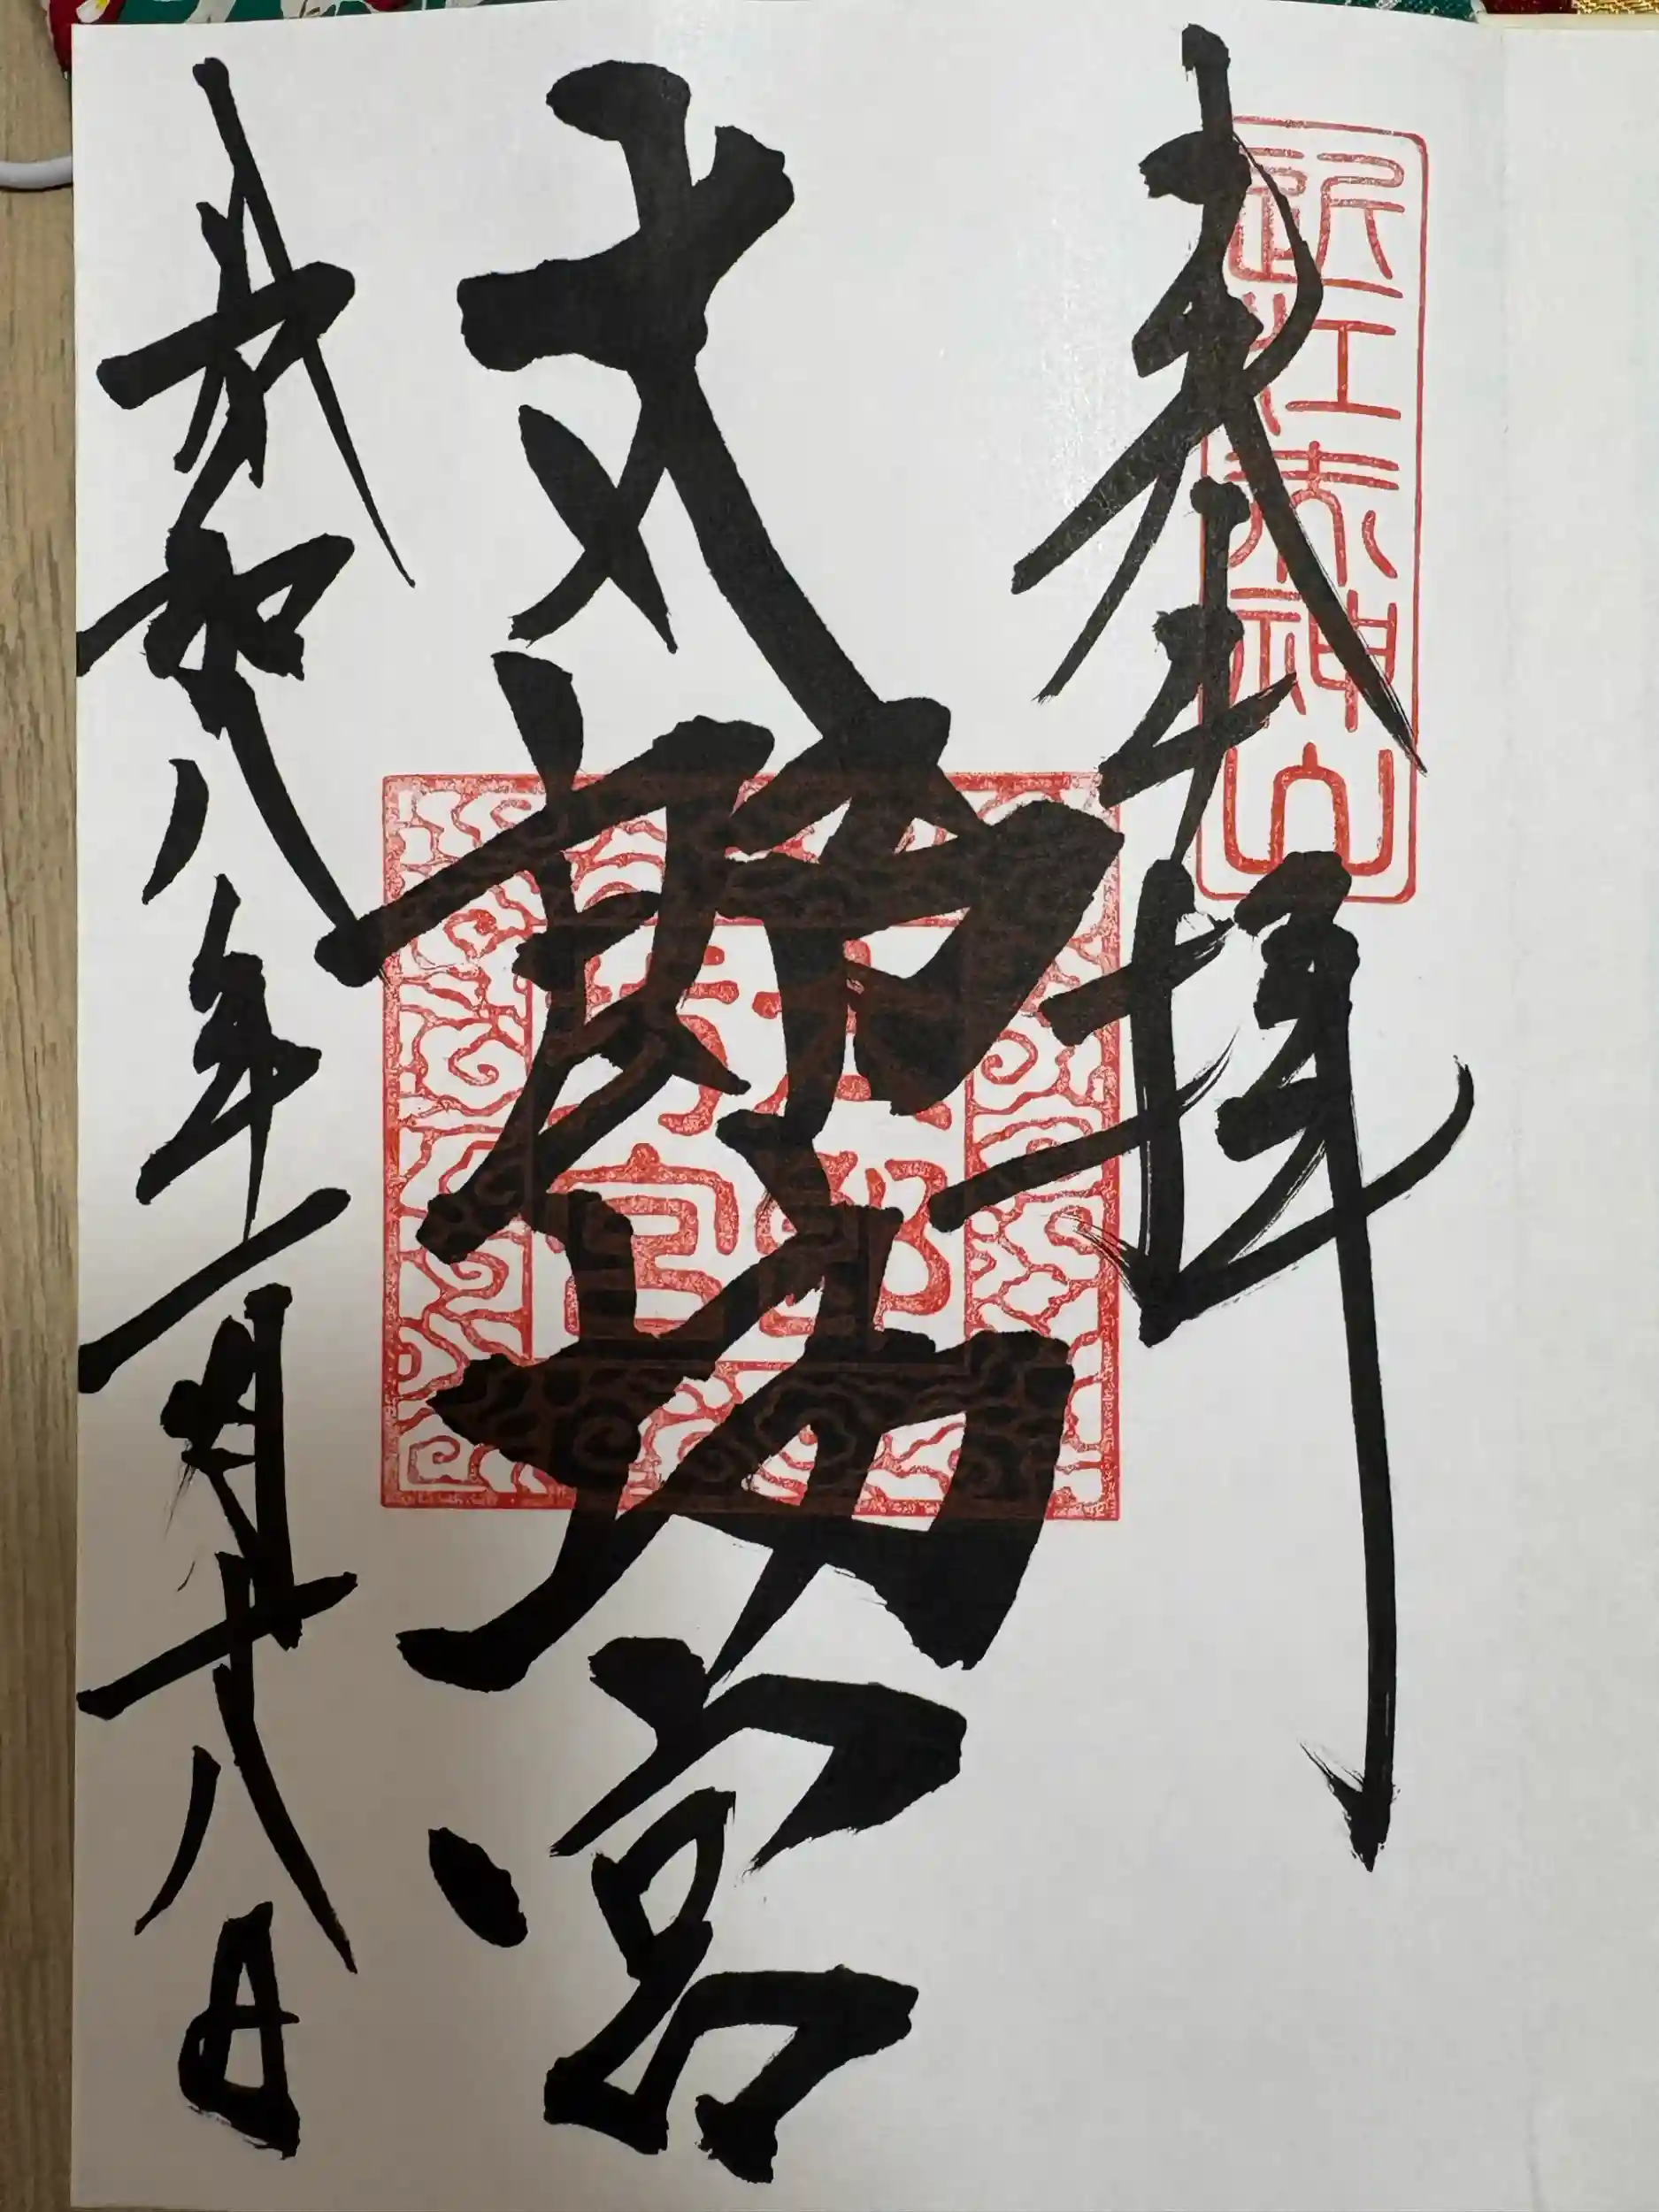 近江赤神山
奉拝
太郎坊宮
太郎
坊宮
令和八年一月十八日